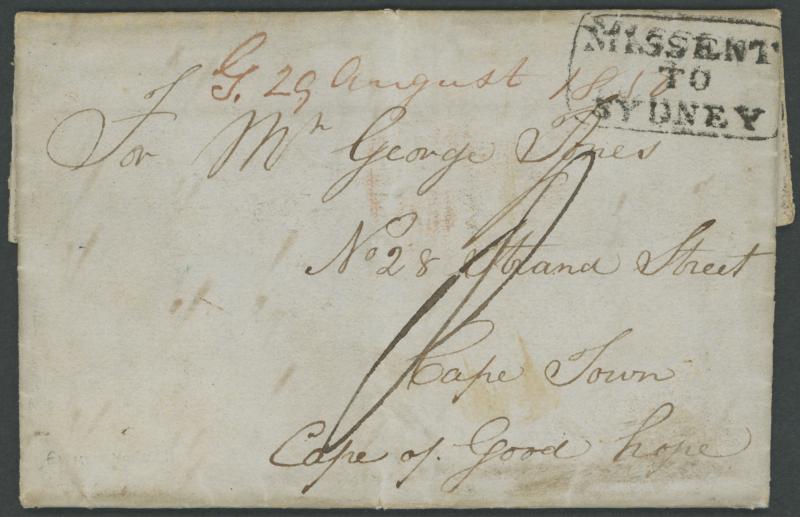 MISSENT
TO
SYDNEY
G. 29 August 1840
For Mr George Jones
No 28 Strand Street
Cape Town
Cape of Good hope